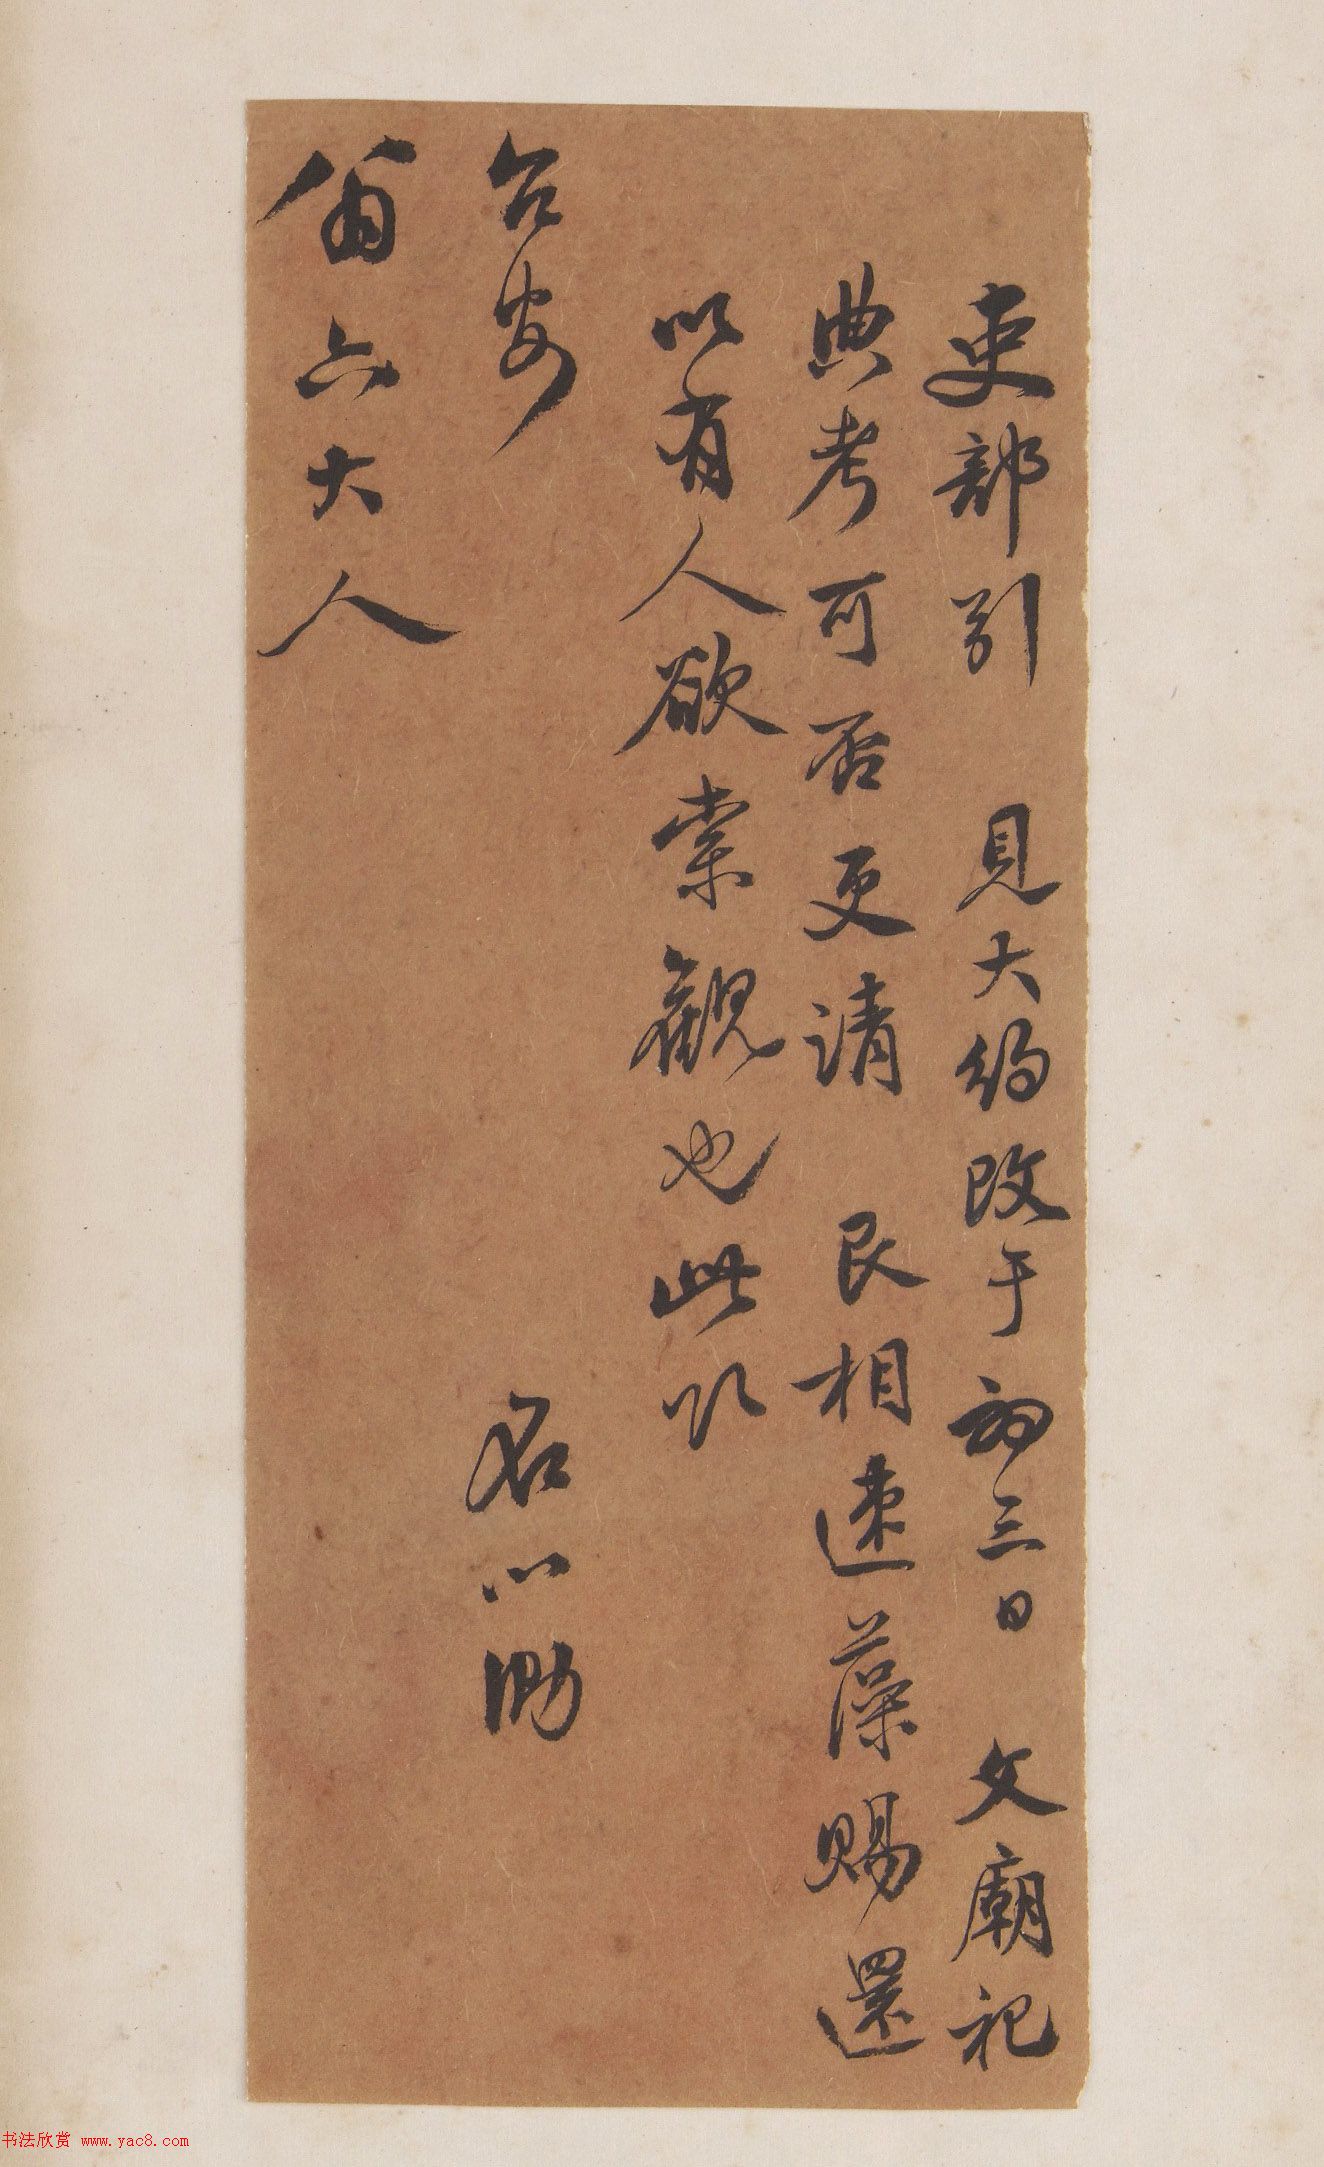 吏部引見大約改于初三日文廟祀
典考可否更請艮相速藻賜還
以有人欲索觀也此頌
台安
名心泐
翁六大人
书法欣赏 www.yac8.com